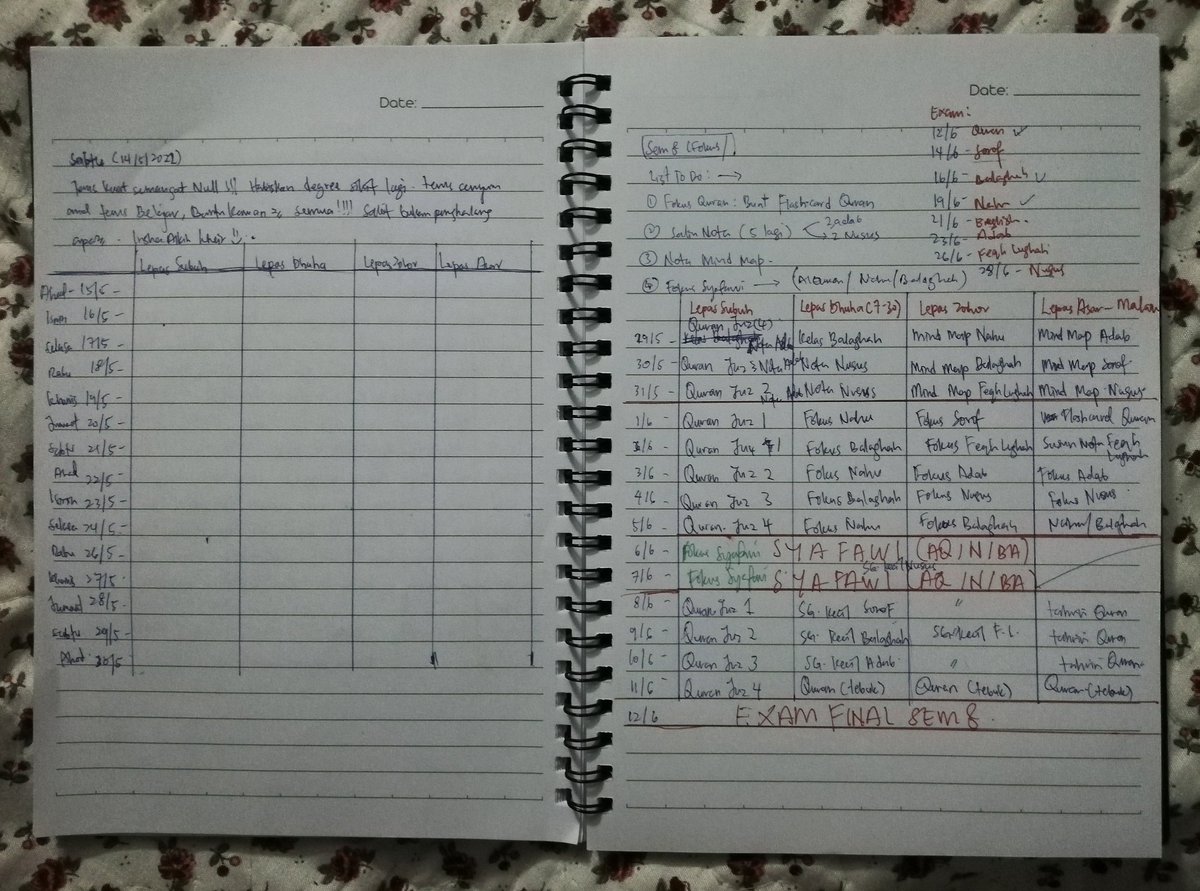 Date:
Sabtu (14/5/2022)
Terus kuat semangat Null !!! Habiskan degree sikit lagi. Terus senyum
and terus Belajar, Bantu kawan2 semua !!!! Sakit bukan penghalang
Inshaa Allah khair
Lepas Subuh Lepas Dhuha Lepas Zohor Lepas Asar
Ahad - 15/5 -
Isnin 16/5 -
Selasa 17/5
Rabu 18/5 -
Khamis 19/5 -
Jumaat 20/5 -
Sabtu 21/5 -
Ahad 22/5 -
Isnin 23/5 -
Selasa 24/5 -
Rabu 26/5 -
Khamis 27/5 -
Jumaat 28/5 -
Sabtu 29/5 -
Ahad 30/5
Date:
Exam:
12/6 - Quran ✓
14/6 - Sorof
16/6 - Balaghah ✓
19/6 - Nahu ✓
21/6 - English.
23/6 - Adab
26/6 - Feqh Lughah
28/6 - Nusus
Sem 8 (Fokus)
List To Do: →
① Fokus Quran: Buat Flashcard Quran
② Salin Nota (5 lagi) 3 adab
2 Nusus
③ Nota Mind Map -
④ Fokus Syafawi → (Alquran/ Nahu/Balaghah)
Lepas Subuh Lepas Dhuha (7-30) Lepas Zohor Lepas Asar - Malam
29/5 - Quran Juz (4) Nota Adab Kelas Balaghah Mind Map Nahu Mind Map Adab
30/5 - Quran Juz 3 Nota Adab Nota Nusus Mind Map Balaghah Mind Map Sorof
31/5 - Quran Juz 2 Nota Adab Nota Nusus Mind Map Feqh Lughah Mind Map Nusus
1/6 - Quran Juz 1 Fokus Nahu Fokus Sorof Flashcard Quran
2/6 - Quran Juz 1 Fokus Balaghah Fokus Feqh Lughah Nota Feqh Lughah
3/6 - Quran Juz 2 Fokus Nahu Fokus Adab Fokus Adab
4/6 - Quran Juz 3 Fokus Balaghah Fokus Nusus Fokus Nusus
5/6 - Quran. Juz 4 Fokus Nahu Fokus Balaghah Nahu/Balghah
6/6 - Fokus Syafawi SYAFAWI (AQ/N/BA)
7/6 - Fokus Syafawi SYAFAWI (AQ/N/BA)
8/6 - Quran Juz 1 SG. Kecil Sorof " tahriri Quran
9/6 - Quran Juz 2 SG. Kecil Balaghah SG. Kecil F.L. tahriri Quran
10/6 - Quran Juz 3 SG. Kecil Adab " tahriri Quran
11/6 - Quran Juz 4 Quran (tebuk) Quran (tebuk) Quran (tebuk)
12/6 EXAM FINAL SEM 8.